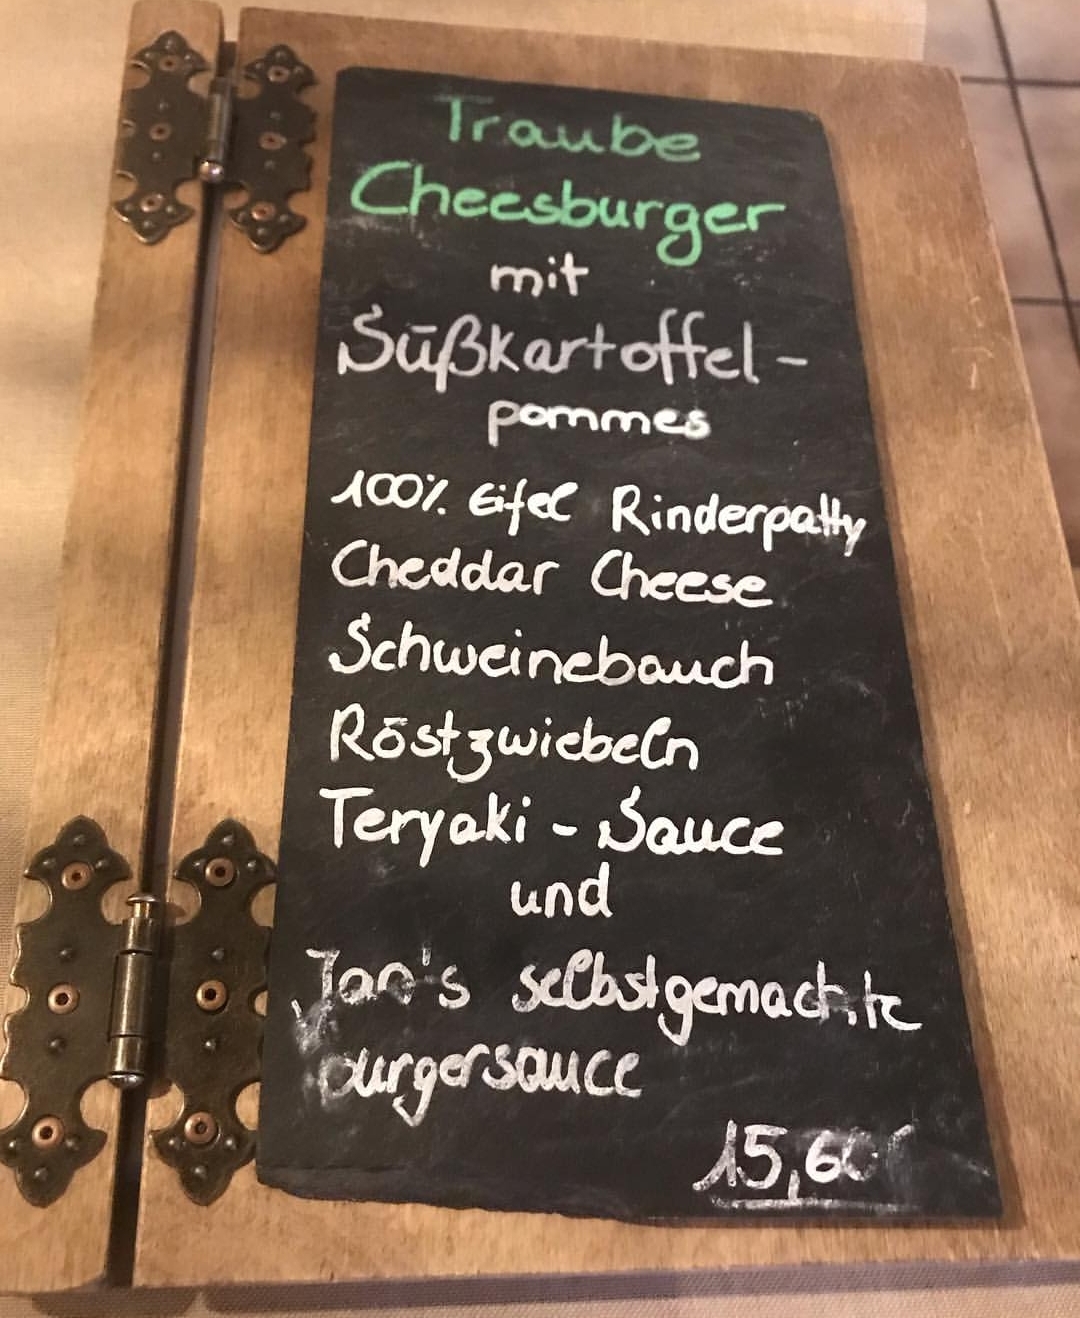 Traube
Cheesburger
mit
Süßkartoffel-
pommes
100% Eifel Rinderpatty
Cheddar Cheese
Schweinebauch
Röstzwiebeln
Teryaki-Sauce
und
Jan's selbstgemachte
burgersauce
15,60